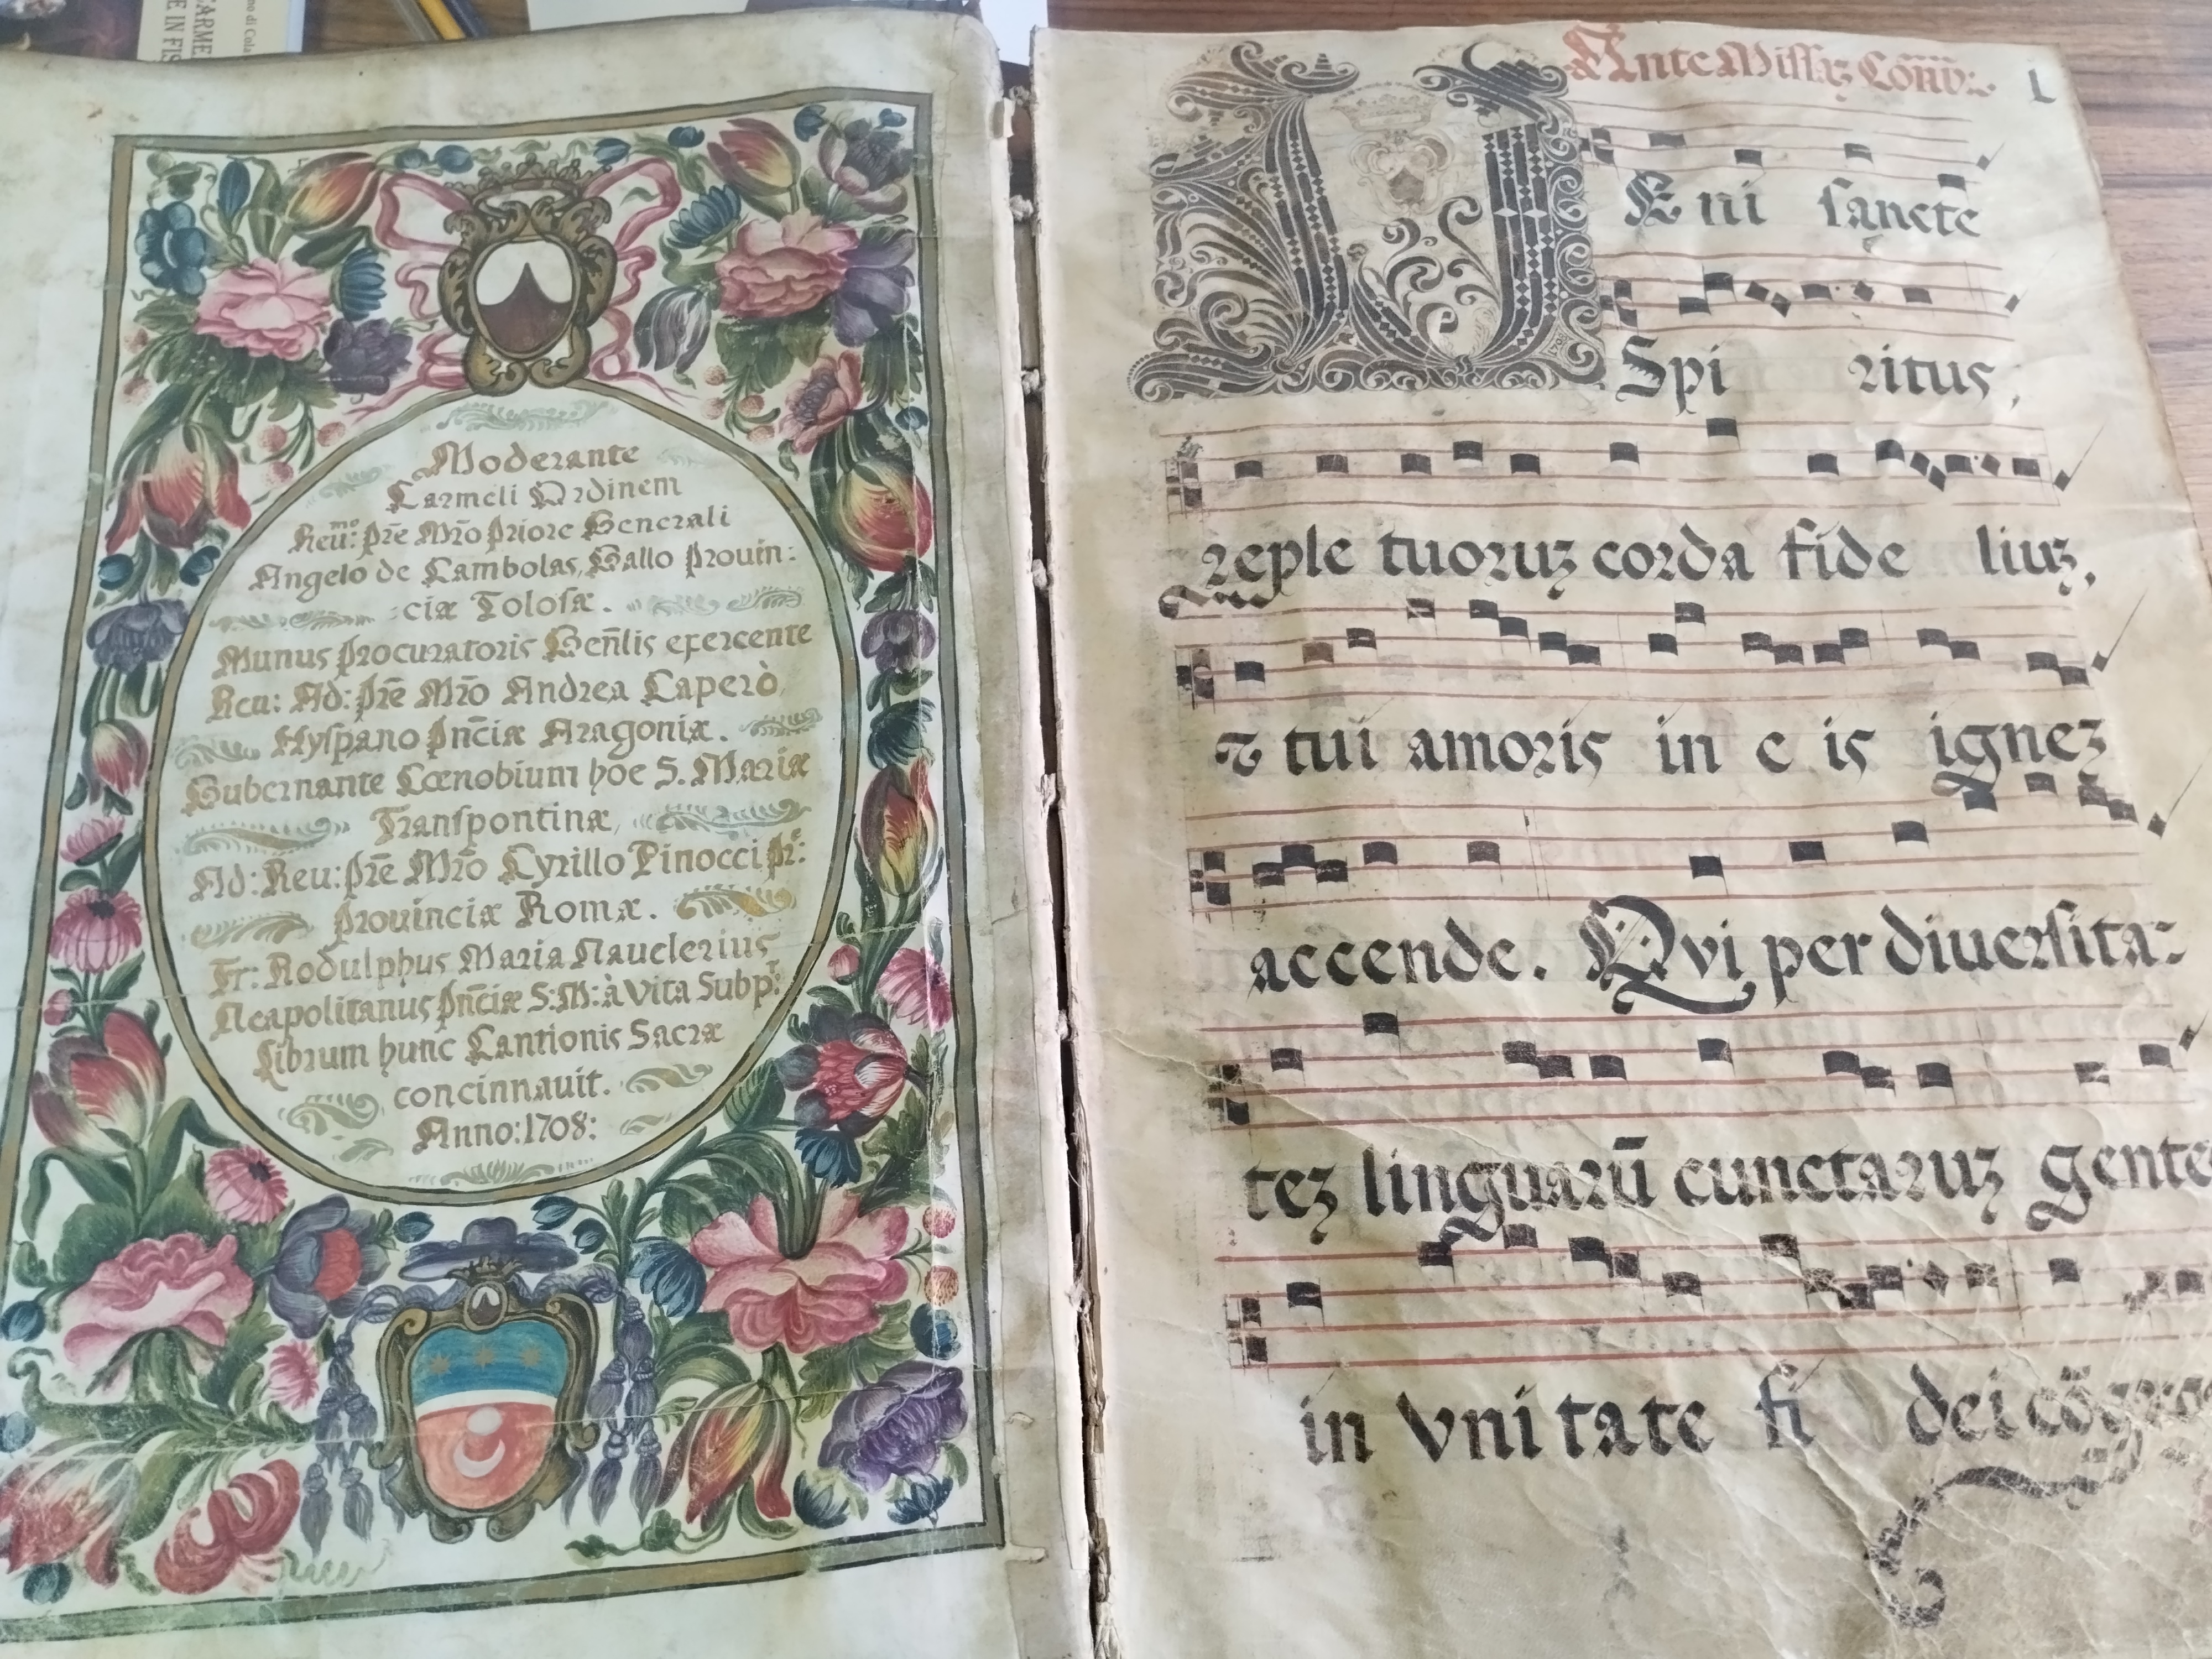 no di Cola
CARME
E IN FIS
Moderante
Carmeli Ordinem
Reu:mo prē Mrō priore Generali
Angelo de Cambolas, Gallo prouin:
ciæ Tolosæ.
Munus procuratoris Gen̄lis exercente
Reu: Ad: prē Mrō Andrea Caperò,
Hyſpano pn̄ciæ Aragoniæ.
Gubernante Cœnobium hoc S. Mariæ
Tranſpontinæ,
Ad: Reu: prē Mrō Cyrillo Pinocci pr̄:
prouinciæ Romæ.
Fr: Rodulphus Maria Nauclerius
Neapolitanus pn̄ciæ S: M: à Vita Subp:r
Librum hunc Cantionis Sacræ
concinnauit.
Anno: 1708:
Ante Miſſaz Cōnv:
1
VEni ſancte
Spi ritus,
reple tuoruz corda fide liuz,
⁊ tui amoris in e is ignez
accende. Qvi per diuerſita-
tez linguarū cunctaruz gente
in vnitate fi dei cōgre